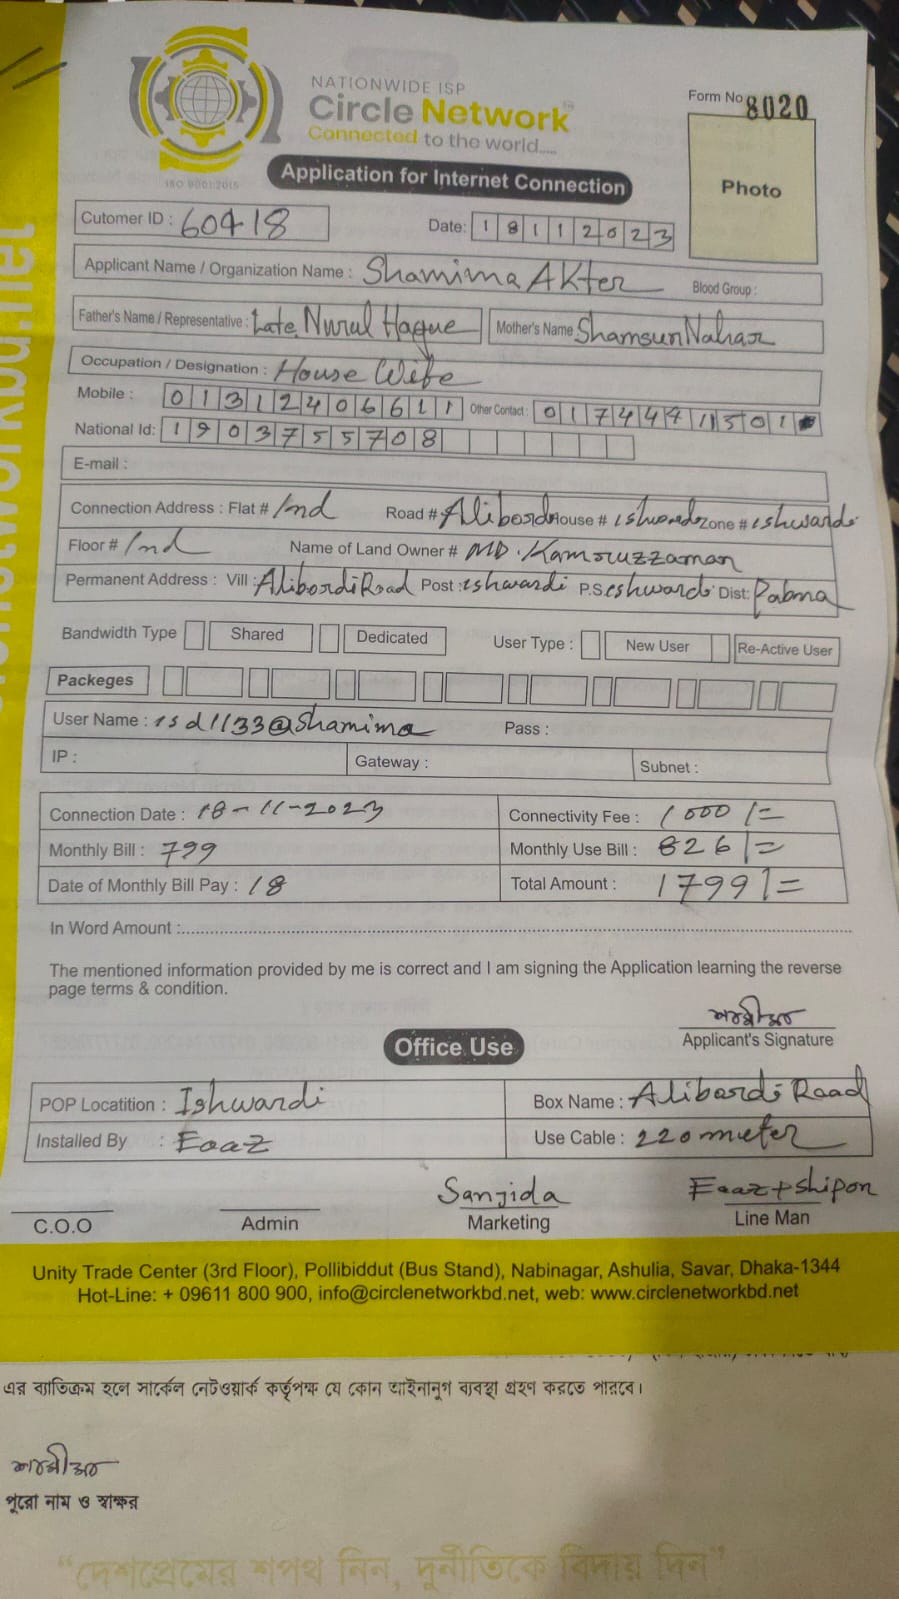 NATIONWIDE ISP
Circle Network
Connected to the world.....
ISO 9001:2015
Form No 8020
Application for Internet Connection
Photo
Cutomer ID : 60418
Date: 18112023
Applicant Name / Organization Name : Shamima Akter Blood Group :
Father's Name / Representative : Late. Nurul Haque Mother's Name Shamsun Nahar
Occupation / Designation : House Wife
Mobile : 01312406611 Other Contact : 01744411501
National Id: 1903755708
E-mail :
Connection Address : Flat # Ind Road # Alibordi House # ishwardi Zone # ishwardi
Floor # Ind Name of Land Owner # MD. Kamruzzaman
Permanent Address : Vill : Alibordi Road Post : ishwardi P.S eshwardi Dist: Pabna
Bandwidth Type Shared Dedicated User Type : New User Re-Active User
Packeges
User Name : isd1133@shamima Pass :
IP : Gateway : Subnet :
Connection Date : 18-11-2023 Connectivity Fee : 1000/=
Monthly Bill : 799 Monthly Use Bill : 826/=
Date of Monthly Bill Pay : 18 Total Amount : 1799/=
In Word Amount :
The mentioned information provided by me is correct and I am signing the Application learning the reverse
page terms & condition.
Applicant's Signature
Office Use
POP Locatition : Ishwardi Box Name : Alibordi Road
Installed By : Eaaz Use Cable : 220 meter
Sanjida Eaaz + Shipon
C.O.O Admin Marketing Line Man
Unity Trade Center (3rd Floor), Pollibiddut (Bus Stand), Nabinagar, Ashulia, Savar, Dhaka-1344
Hot-Line: + 09611 800 900, info@circlenetworkbd.net, web: www.circlenetworkbd.net
এর ব্যতিক্রম হলে সার্কেল নেটওয়ার্ক কর্তৃপক্ষ যে কোন আইনানুগ ব্যবস্থা গ্রহণ করতে পারবে।
পুরো নাম ও স্বাক্ষর
“দেশপ্রেমের শপথ নিন, দুর্নীতিকে বিদায় দিন”